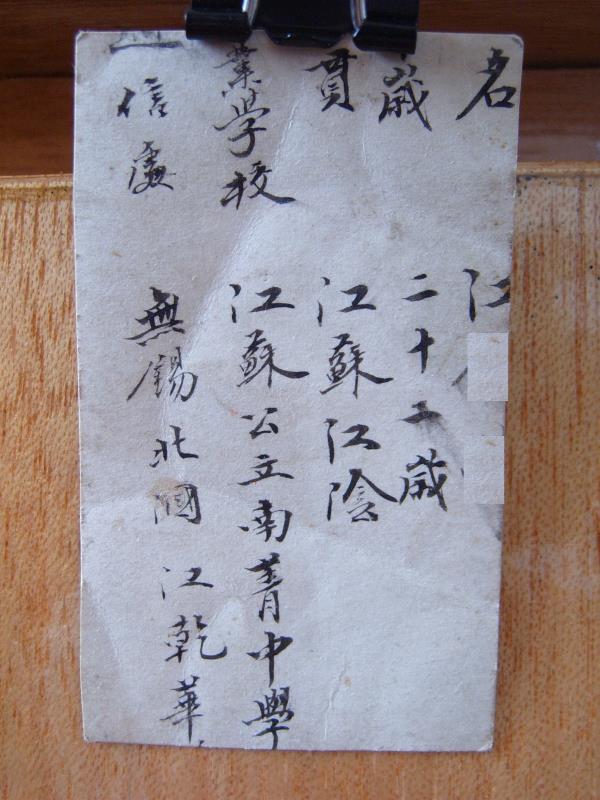 名 江
歲 二十二歲
貫 江蘇江陰
業學校 江蘇公立南菁中學
信處 無錫北國 江乾華